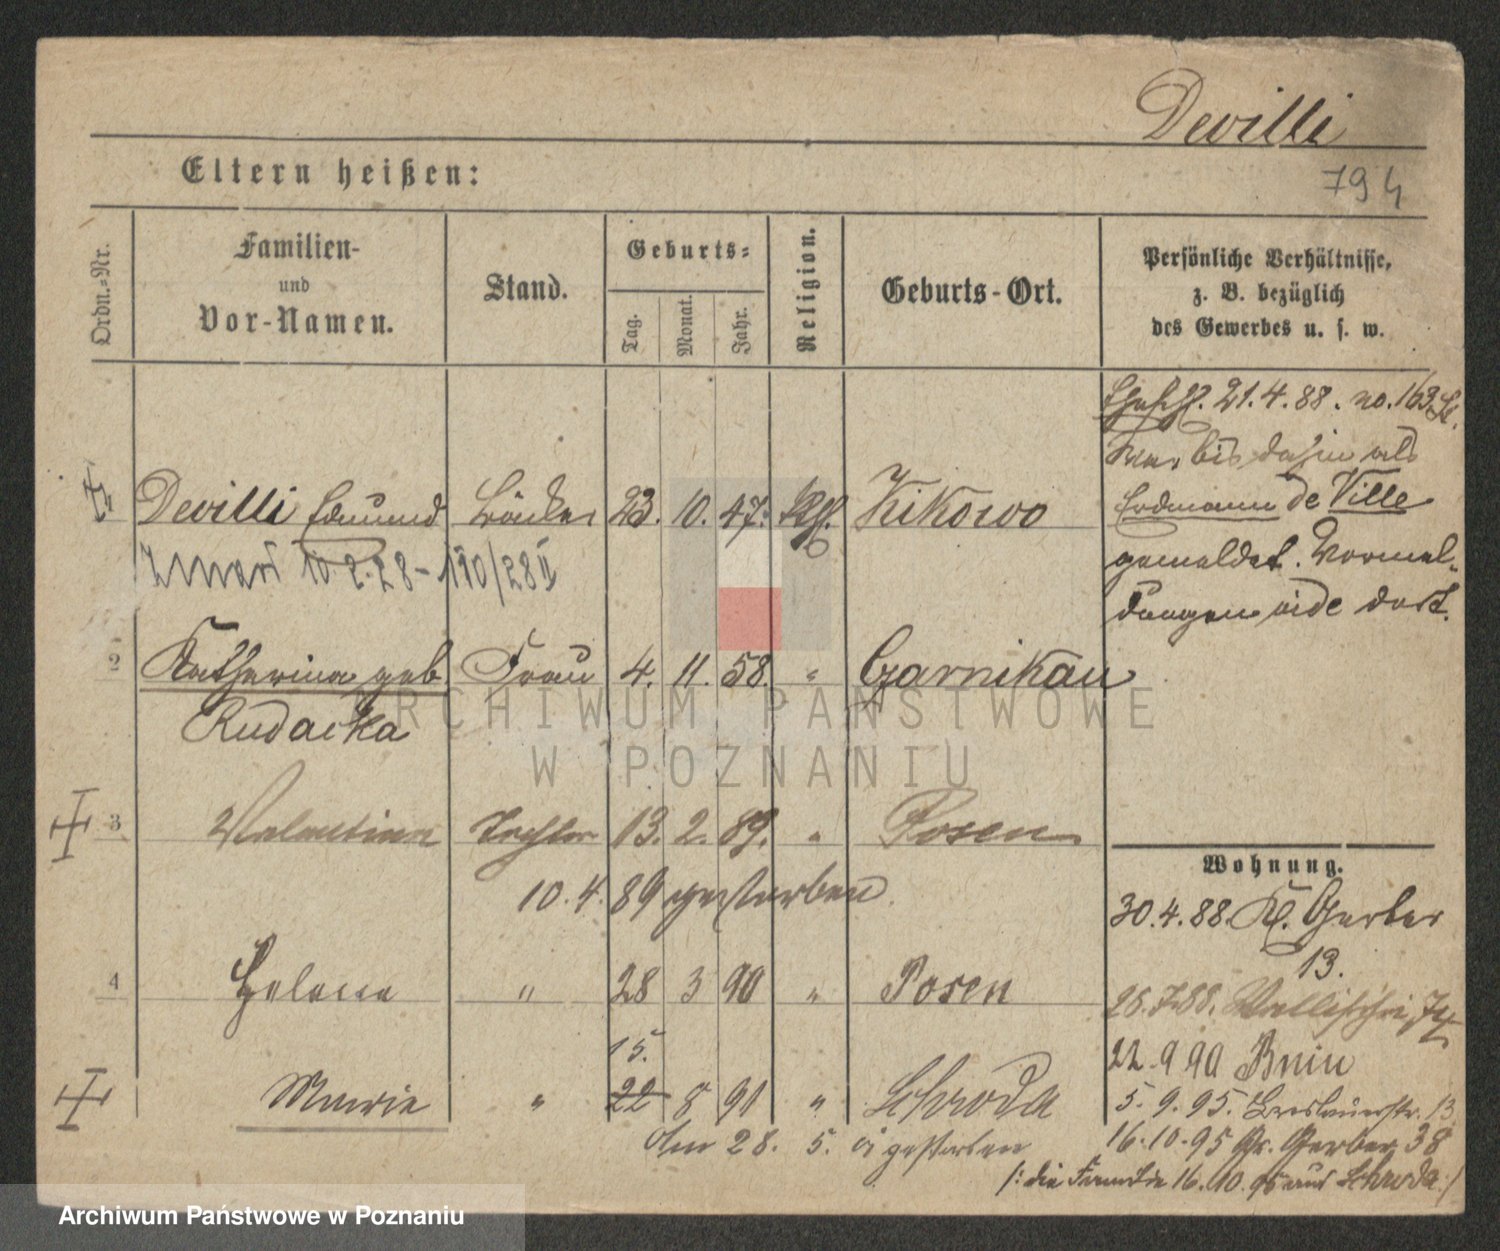 Devilli
794
Eltern heißen:
Ordn.-Nr.
Familien-
und
Vor-Namen.
Stand.
Geburts-
Tag.
Monat.
Jahr.
Religion.
Geburts-Ort.
Persönliche Verhältnisse,
z. B. bezüglich
des Gewerbes u. s. w.
21.4.88. no. 163
War bis dahin als
Devilli Edmund Bäcker 23. 10. 47. Kikowo
Erdmann de Ville
gemeldet. Vormel-
dungen dort.
Zmarł 10.2.28 - 190/28 II
2 Katharina geb. Frau 4. 11. 58. " Czarnikau
Rudacka
ARCHIWUM PAŃSTWOWE
W POZNANIU
3 Valentina Tochter 13. 2. 89. " Posen
10. 4. 89 gestorben.
Wohnung.
30.4.88. Kl. Gerber
13.
4 Helena " 28 3 90 " Posen
Wallischei 74
22.9 90 Bnin
15.
Marie " 22 8 91 " Schroda
5. 9. 95. Breslauerstr. 13
28. 5. gestorben
16.10.95 Gr. Gerber 38
/: die Familie 16.10.95 aus Schroda :/
Archiwum Państwowe w Poznaniu